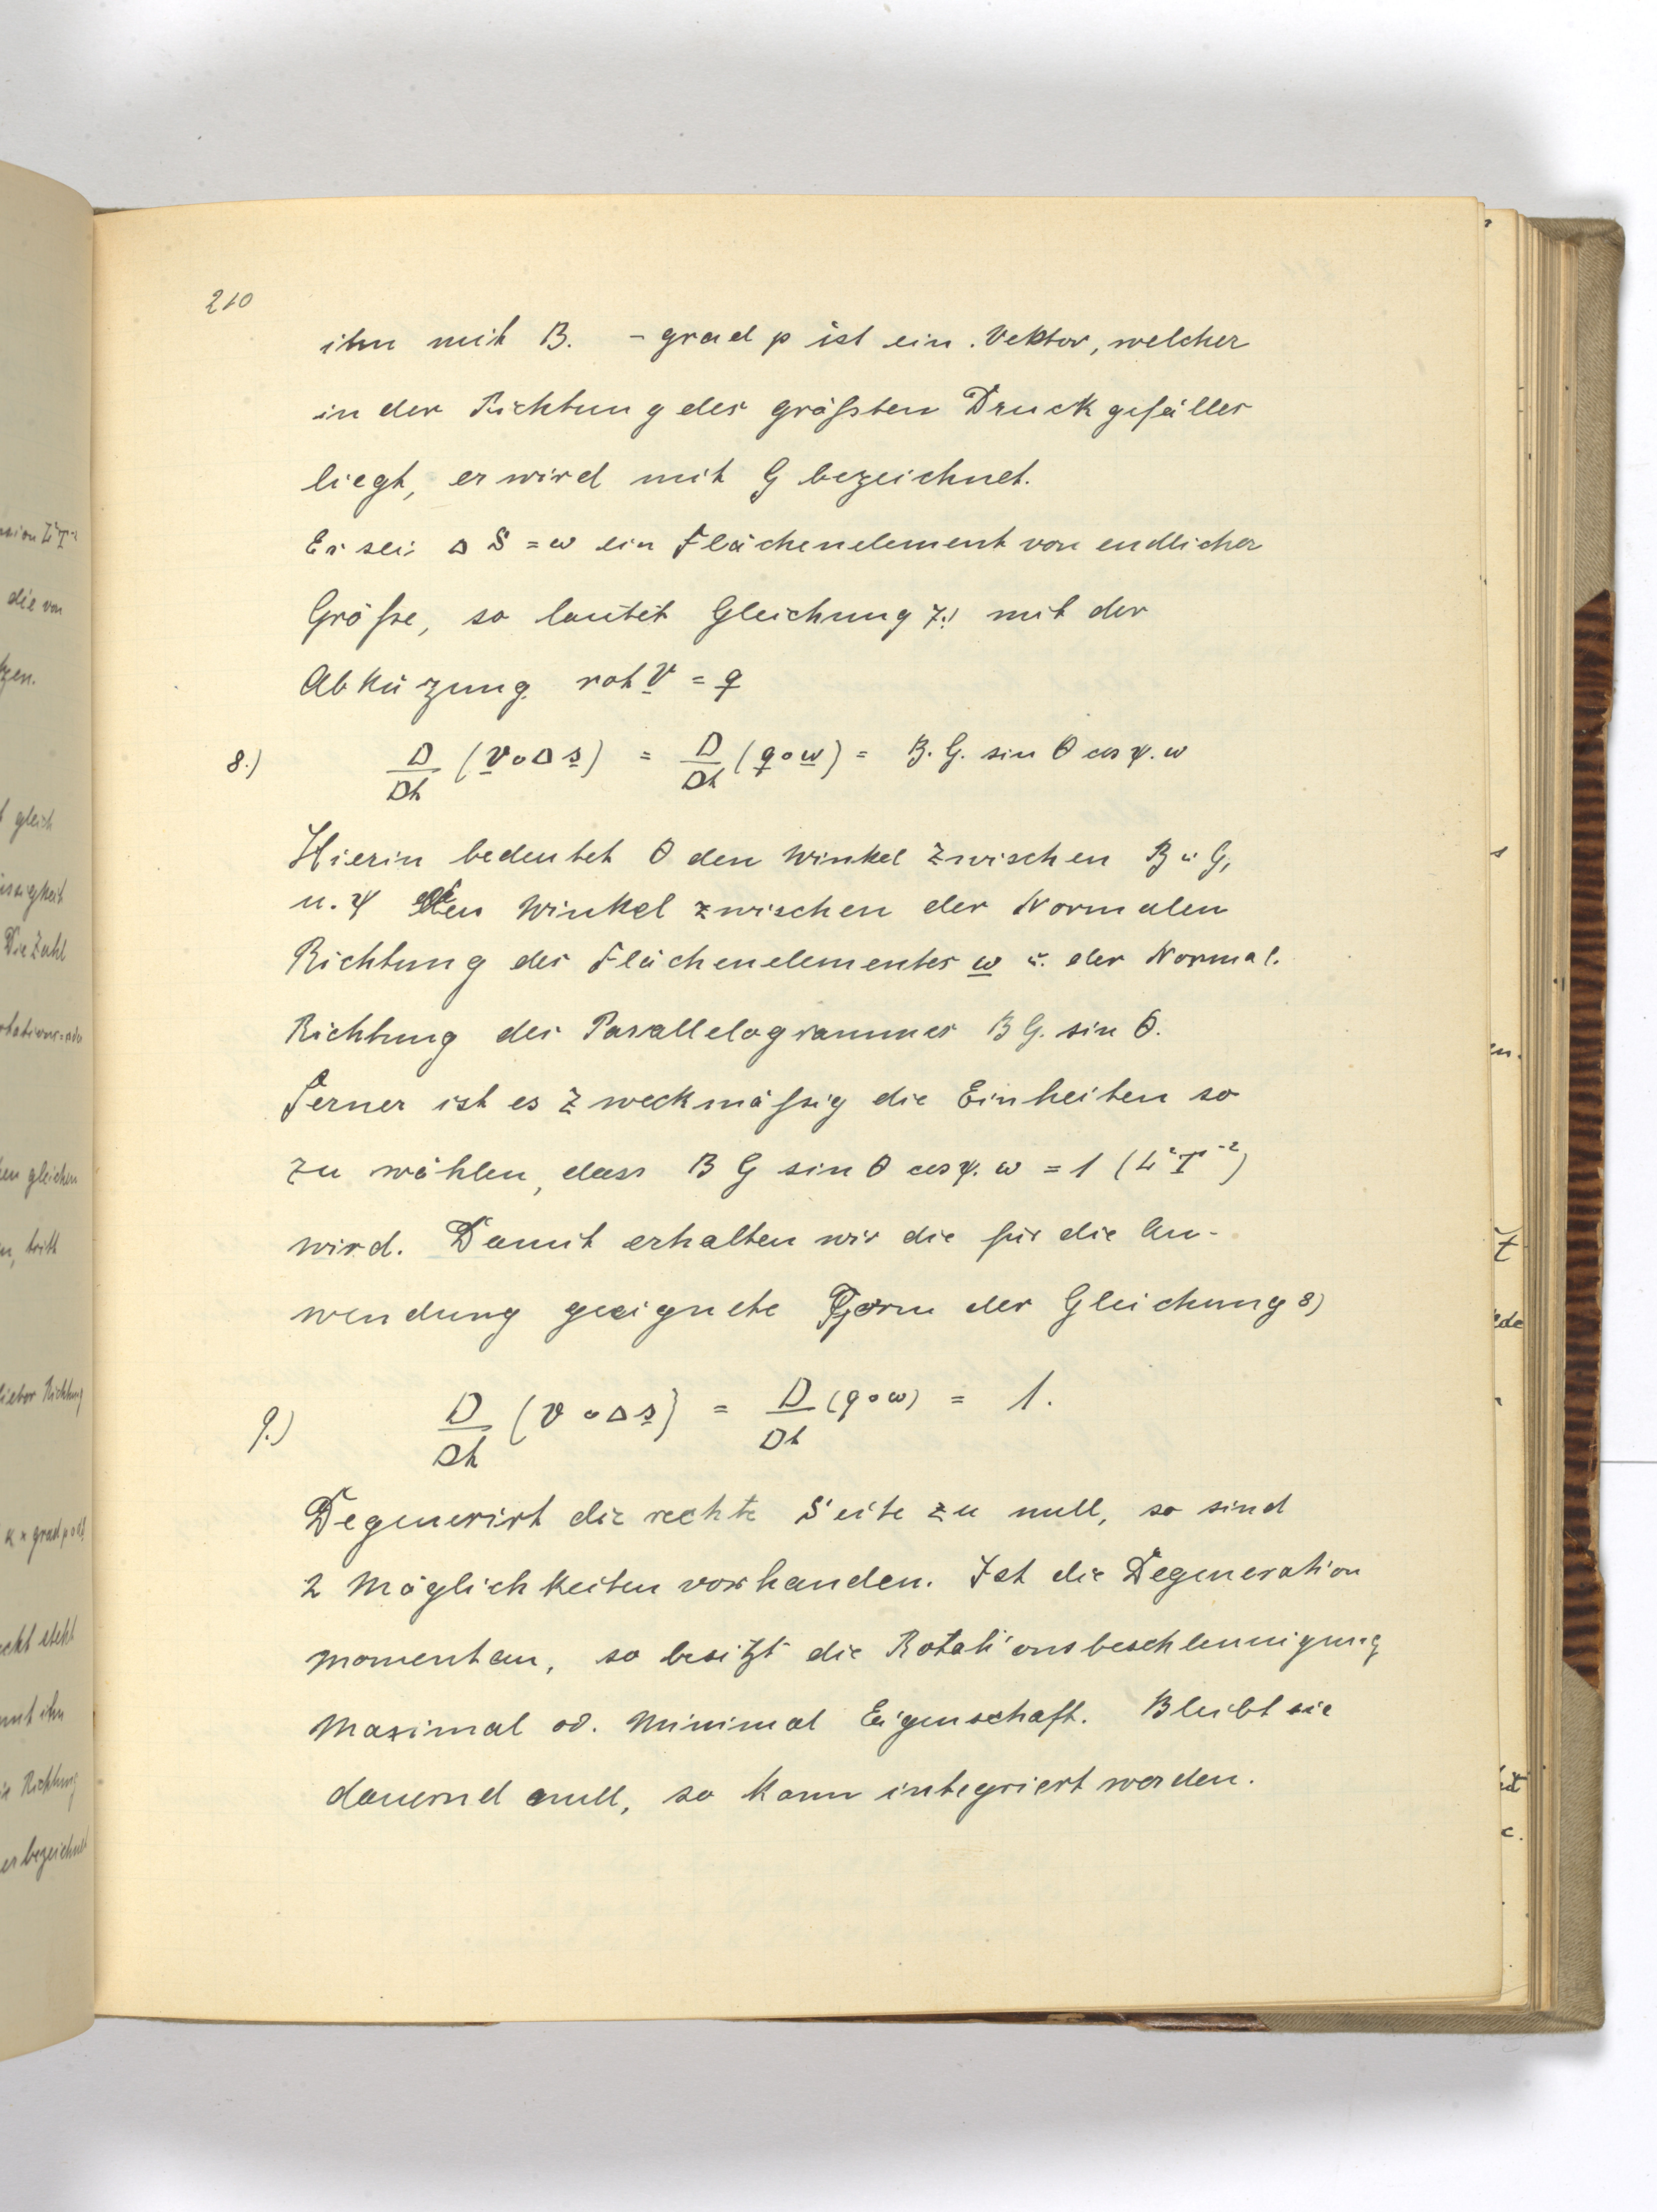 210
ihn mit B. - grad p ist ein Vektor, welcher
in der Richtung des größten Druckgefälles
liegt, er wird mit G bezeichnet.
Es sei Δ S = ω ein Flächenelement von endlicher
Größe, so lautet Gleichung 7.) mit der
Abkürzung rot v = q
8.) D/Dt (v ∘ Δ s) = D/Dt (q ∘ ω) = B. G. sin θ cos ψ. ω
Hierin bedeutet θ den Winkel zwischen B u. G,
u. ψ den Winkel zwischen der Normalen
Richtung des Flächenelementes ω u. der Normal.
Richtung des Parallelogrammes B G. sin θ.
Ferner ist es zweckmäßig die Einheiten so
zu wählen, dass B G sin θ cos ψ. ω = 1 (L² T⁻²)
wird. Damit erhalten wir die für die An-
wendung geeignete Form der Gleichung 8)
9.) D/Dt (v ∘ Δ s) = D/Dt (q ∘ ω) = 1.
Degenerirt die rechte Seite zu null, so sind
2 Möglichkeiten vorhanden. Ist die Degeneration
momentan, so besitzt die Rotationsbeschleunigung
Maximal od. Minimal Eigenschaft. Bleibt sie
dauernd null, so kann integriert werden.